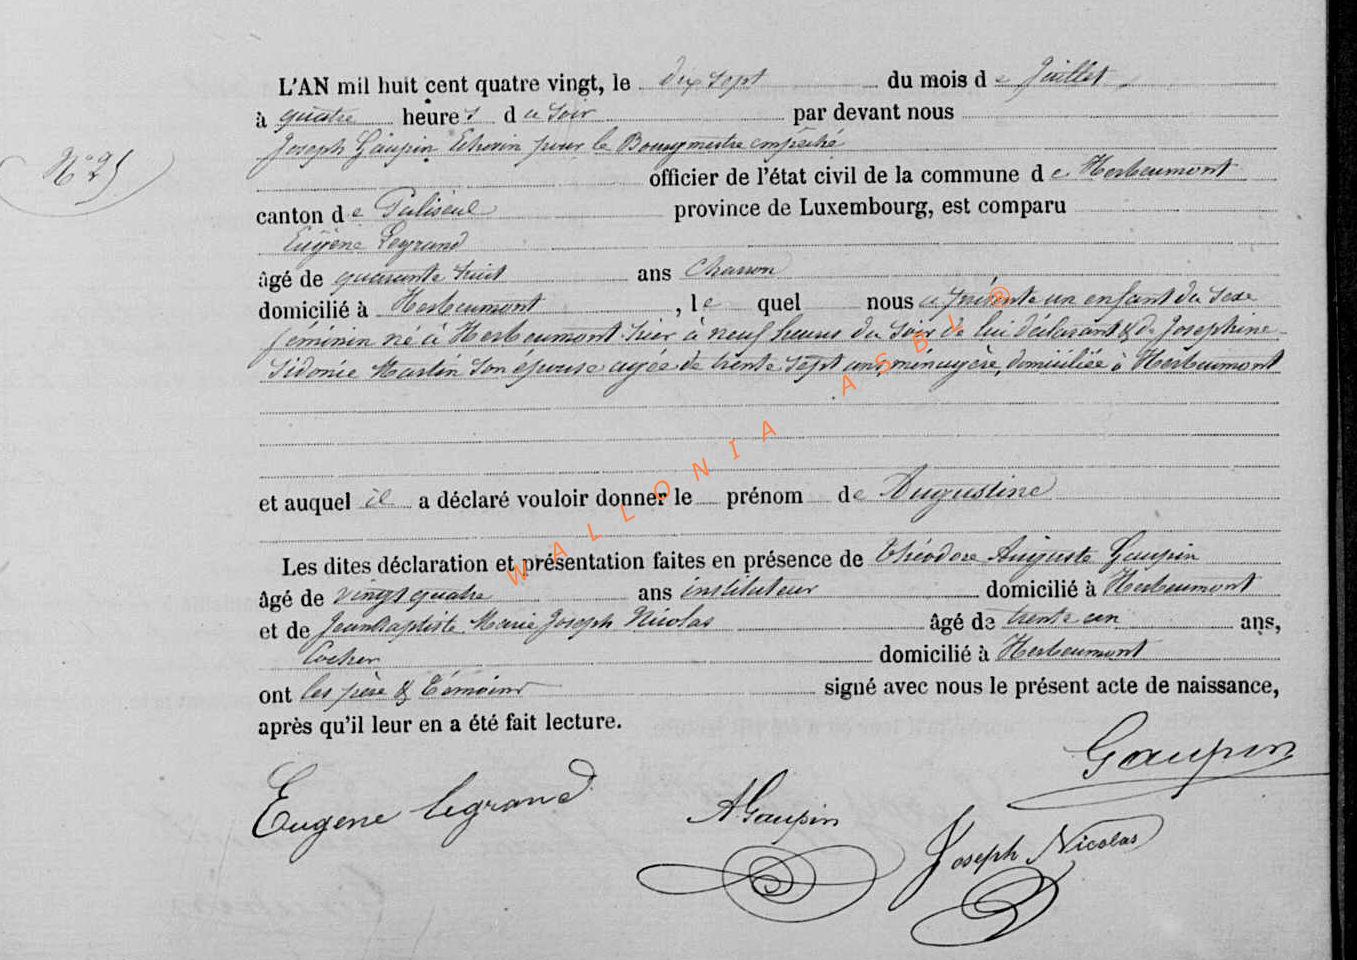 L'AN mil huit cent quatre vingt, le dix sept du mois de Juillet
à quatre heures du soir par devant nous
Joseph Gaupin Echevin pour le Bourgmestre empêché
N° 25
officier de l'état civil de la commune de Herbeumont
canton de Paliseul province de Luxembourg, est comparu
Eugène Legrand
âgé de quarante huit ans Charron
domicilié à Herbeumont, lequel nous a présenté un enfant du sexe
féminin né à Herbeumont hier à neuf heures du soir de lui déclarant & de Josephine
Sidonie Martin son épouse agée de trente sept ans, ménagère, domiciliée à Herbeumont
et auquel il a déclaré vouloir donner le prénom de Augustine
Les dites déclaration et présentation faites en présence de Théodore Auguste Gaupin
âgé de vingt quatre ans instituteur domicilié à Herbeumont
et de Jean Baptiste Marie Joseph Nicolas âgé de trente un ans,
Cocher domicilié à Herbeumont
ont les père & témoins signé avec nous le présent acte de naissance,
après qu'il leur en a été fait lecture.
Gaupin
Eugène Legrand
A Gaupin
Joseph Nicolas
WALLONIA ASBL ®